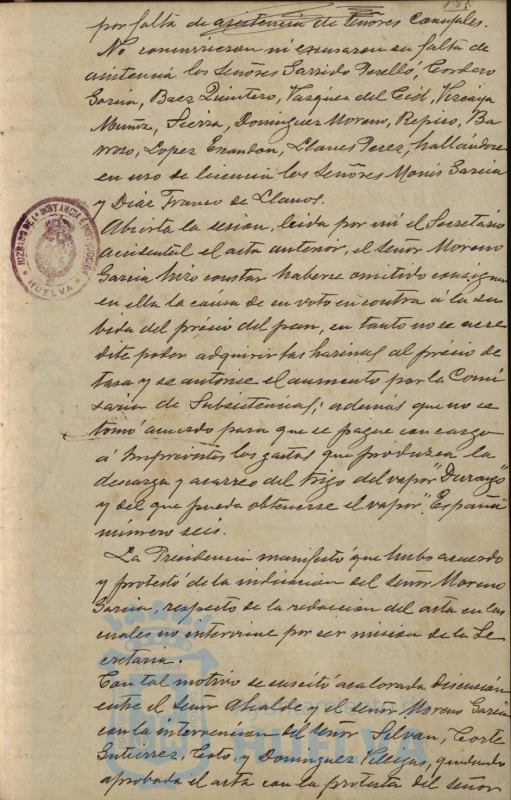 por falta de asistencia de Señores Concejales.
No concurrieron ni excusaron su falta de
asistencia los Señores Garrido Perelló, Cordero
García, Baez Quintero, Vazquez del Cid, Vizcaya
Muñoz, Sierra, Dominguez Moreno, Repiso, Ba
rroso, Lopez, Llanes Perez, hallándose
en uso de licencia los Señores Monis García
y Diaz Franco de Llanos.
Abierta la sesion, leida por mi el Secretario
accidental el acta anterior, el señor Moreno
García hizo constar haberse omitido consignar
en ella la causa de su voto en contra á la su
bida del précio del pan, en tanto no se acre
dite poder adquirir las harinas al précio de
tasa y se autorice el aumento por la Comi
saría de Subsistencias; además que no se
tomó acuerdo para que se pague con cargo
á Imprevistos los gastos que produzca la
descarga y acarreo del trigo del vapor "Durango"
y del que pueda obtenerse el vapor "España
número seis.
La Presidencia manifestó que hubo acuerdo
y protestó de la indicacion del señor Moreno
García, respecto de la redaccion del acta en las
cuales no interviene por ser mision de la Se
cretaría.
Con tal motivo se suscitó acalorada discusión
entre el señor Alcalde y el señor Moreno García
con la intervencion del señor Silvan, Corte
Gutierrez, Coto y Dominguez, quedando
aprobada el acta con la protesta del señor
JUZGADO DE 1ª INSTANCIA E INSTRUCCION
HUELVA
HUELVA